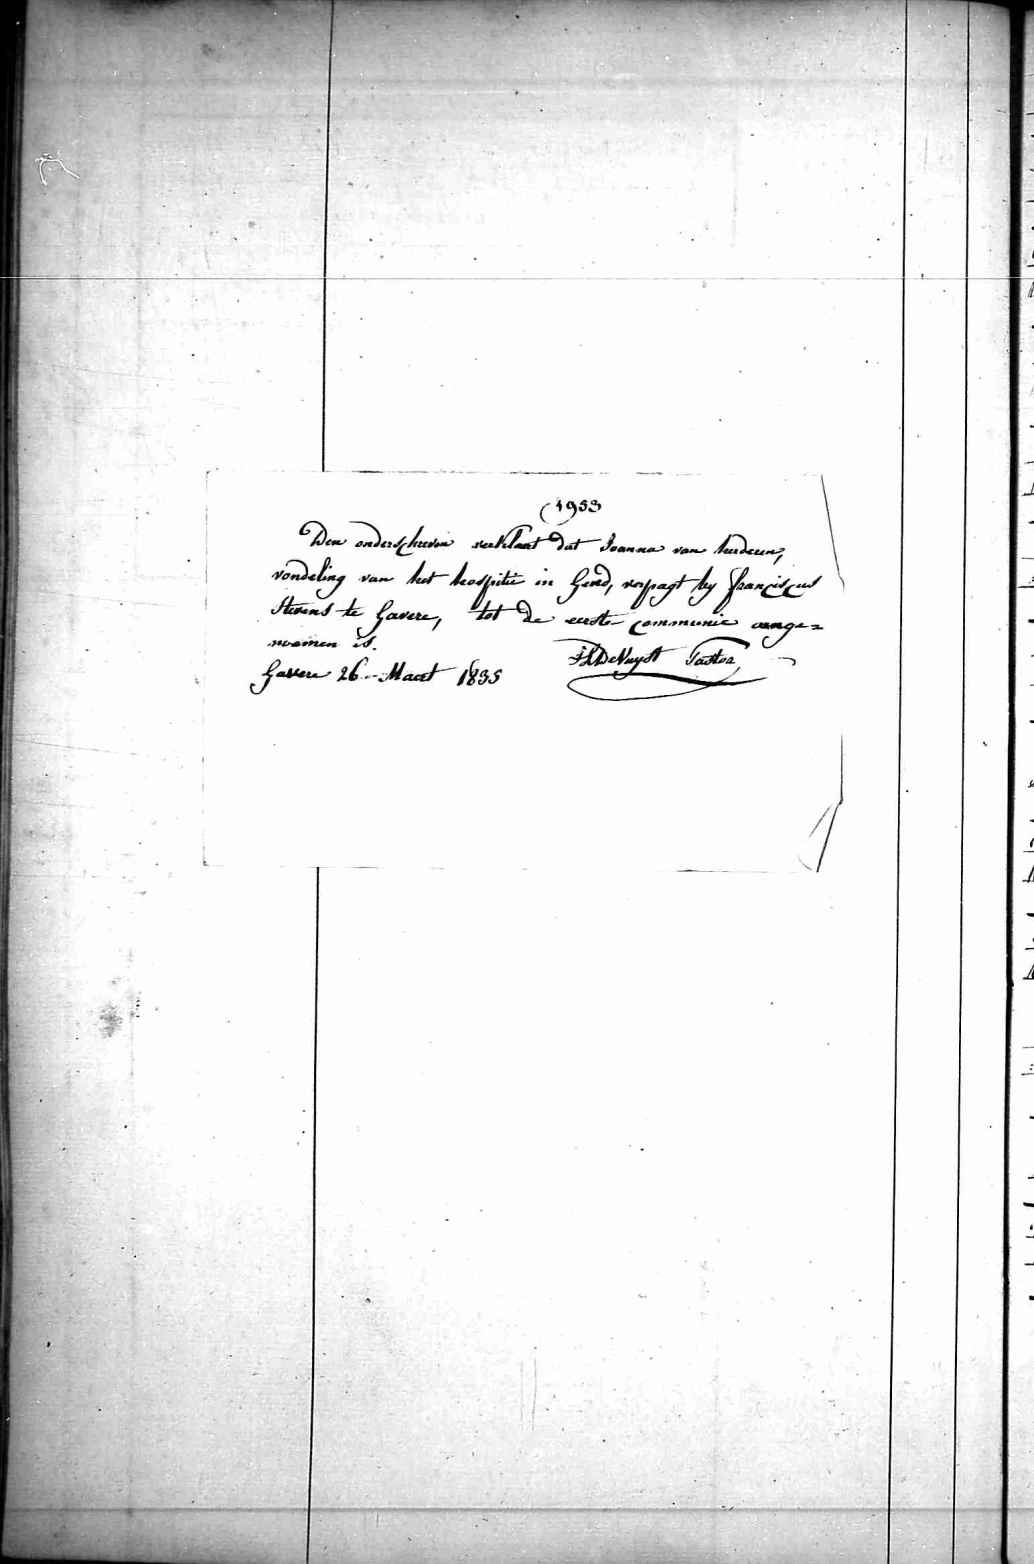 1953
Den onderschreven verklaert dat Joanna van herdeen,
vondeling van het hospitie in Gend, verpagt by franciscus
Stevens te Gavere, tot de eerste communie aenge=
noomen is.
De Nuyst Pastor
Gavere 26 Maert 1835